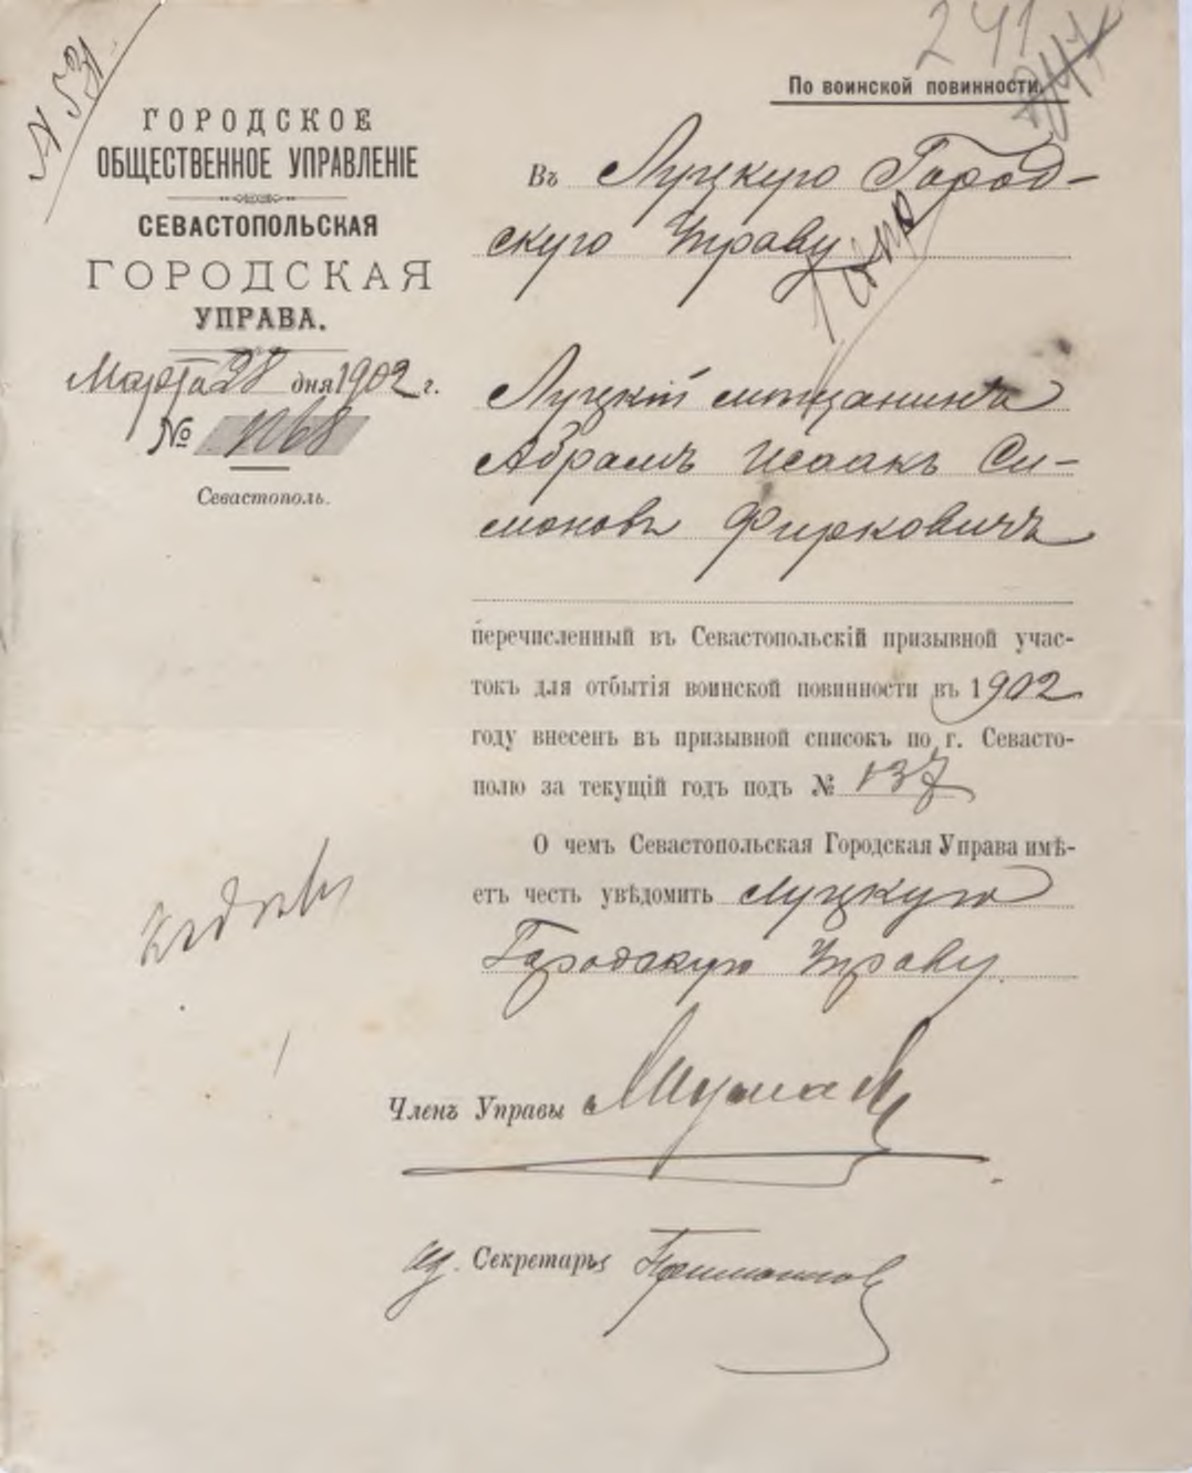 241
№ 531
По воинской повинности.
ГОРОДСКОЕ
ОБЩЕСТВЕННОЕ УПРАВЛЕНІЕ
СЕВАСТОПОЛЬСКАЯ
ГОРОДСКАЯ
УПРАВА.
Марта 28 дня 1902 г.
№ 1068
Севастополь.
Въ Луцкую Город-
скую Управу
Луцкій мѣщанинъ
Абрамъ Исаакъ Си-
моновъ Фирковичъ
перечисленный въ Севастопольскій призывной учас-
токъ для отбытія воинской повинности въ 1902
году внесенъ въ призывной списокъ по г. Севасто-
полю за текущій годъ подъ № 137
О чемъ Севастопольская Городская Управа имѣ-
етъ честь увѣдомить Луцкую
Городскую Управу.
Членъ Управы
Секретарь